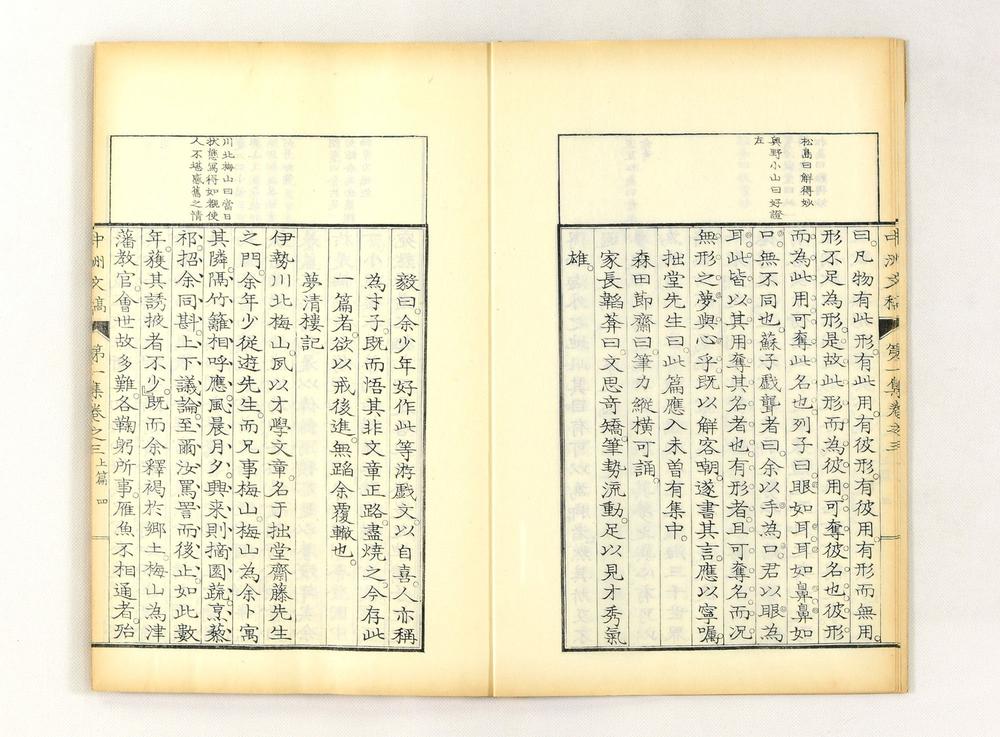 松島曰解得妙
奧野小山曰好證
左
中洲文稿 第一集卷之三
曰。凡物有此形。有此用。有彼形。有彼用。有形而無用。
形不足為形。是故此形而為彼用。可奪彼名也。彼形
而為此用。可奪此名也。列子曰。眼如耳。耳如鼻。鼻如
口。無不同也。蘇子戲聾者曰。余以手為口。君以眼為
耳。此皆以其用奪其名者也。有形者且可奪名。而況
無形之夢與心乎。既以解客嘲。遂書其言。應以寧囑。
拙堂先生曰。此篇應入未曾有集中。
森田節齋曰。筆力縱橫可誦。
家長韜菴曰。文思奇矯。筆勢流動。足以見才秀氣
雄。
川北梅山曰當日
狀態寫得如覩使
人不堪感舊之情
毅曰。余少年好作此等游戲文以自喜。人亦稱
為才子。既而悟其非文章正路。盡燒之。今存此
一篇者。欲以戒後進。無蹈余覆轍也。
夢清樓記
伊勢川北梅山。夙以才學文章。名于拙堂齋藤先生
之門。余年少從遊先生。而兄事梅山。梅山為余卜寓
其隣。隔竹籬相呼應。風晨月夕。興來則摘園蔬。烹藜
祁。招余同斟。上下議論。至爾汝罵詈而後止。如此數
年。獲其誘掖者不少。既而余釋褐於鄉土。梅山為津
藩教官。會世故多難。各鞠躬所事。雁魚不相通者。殆
中洲文稿 第一集卷之三 上篇 四